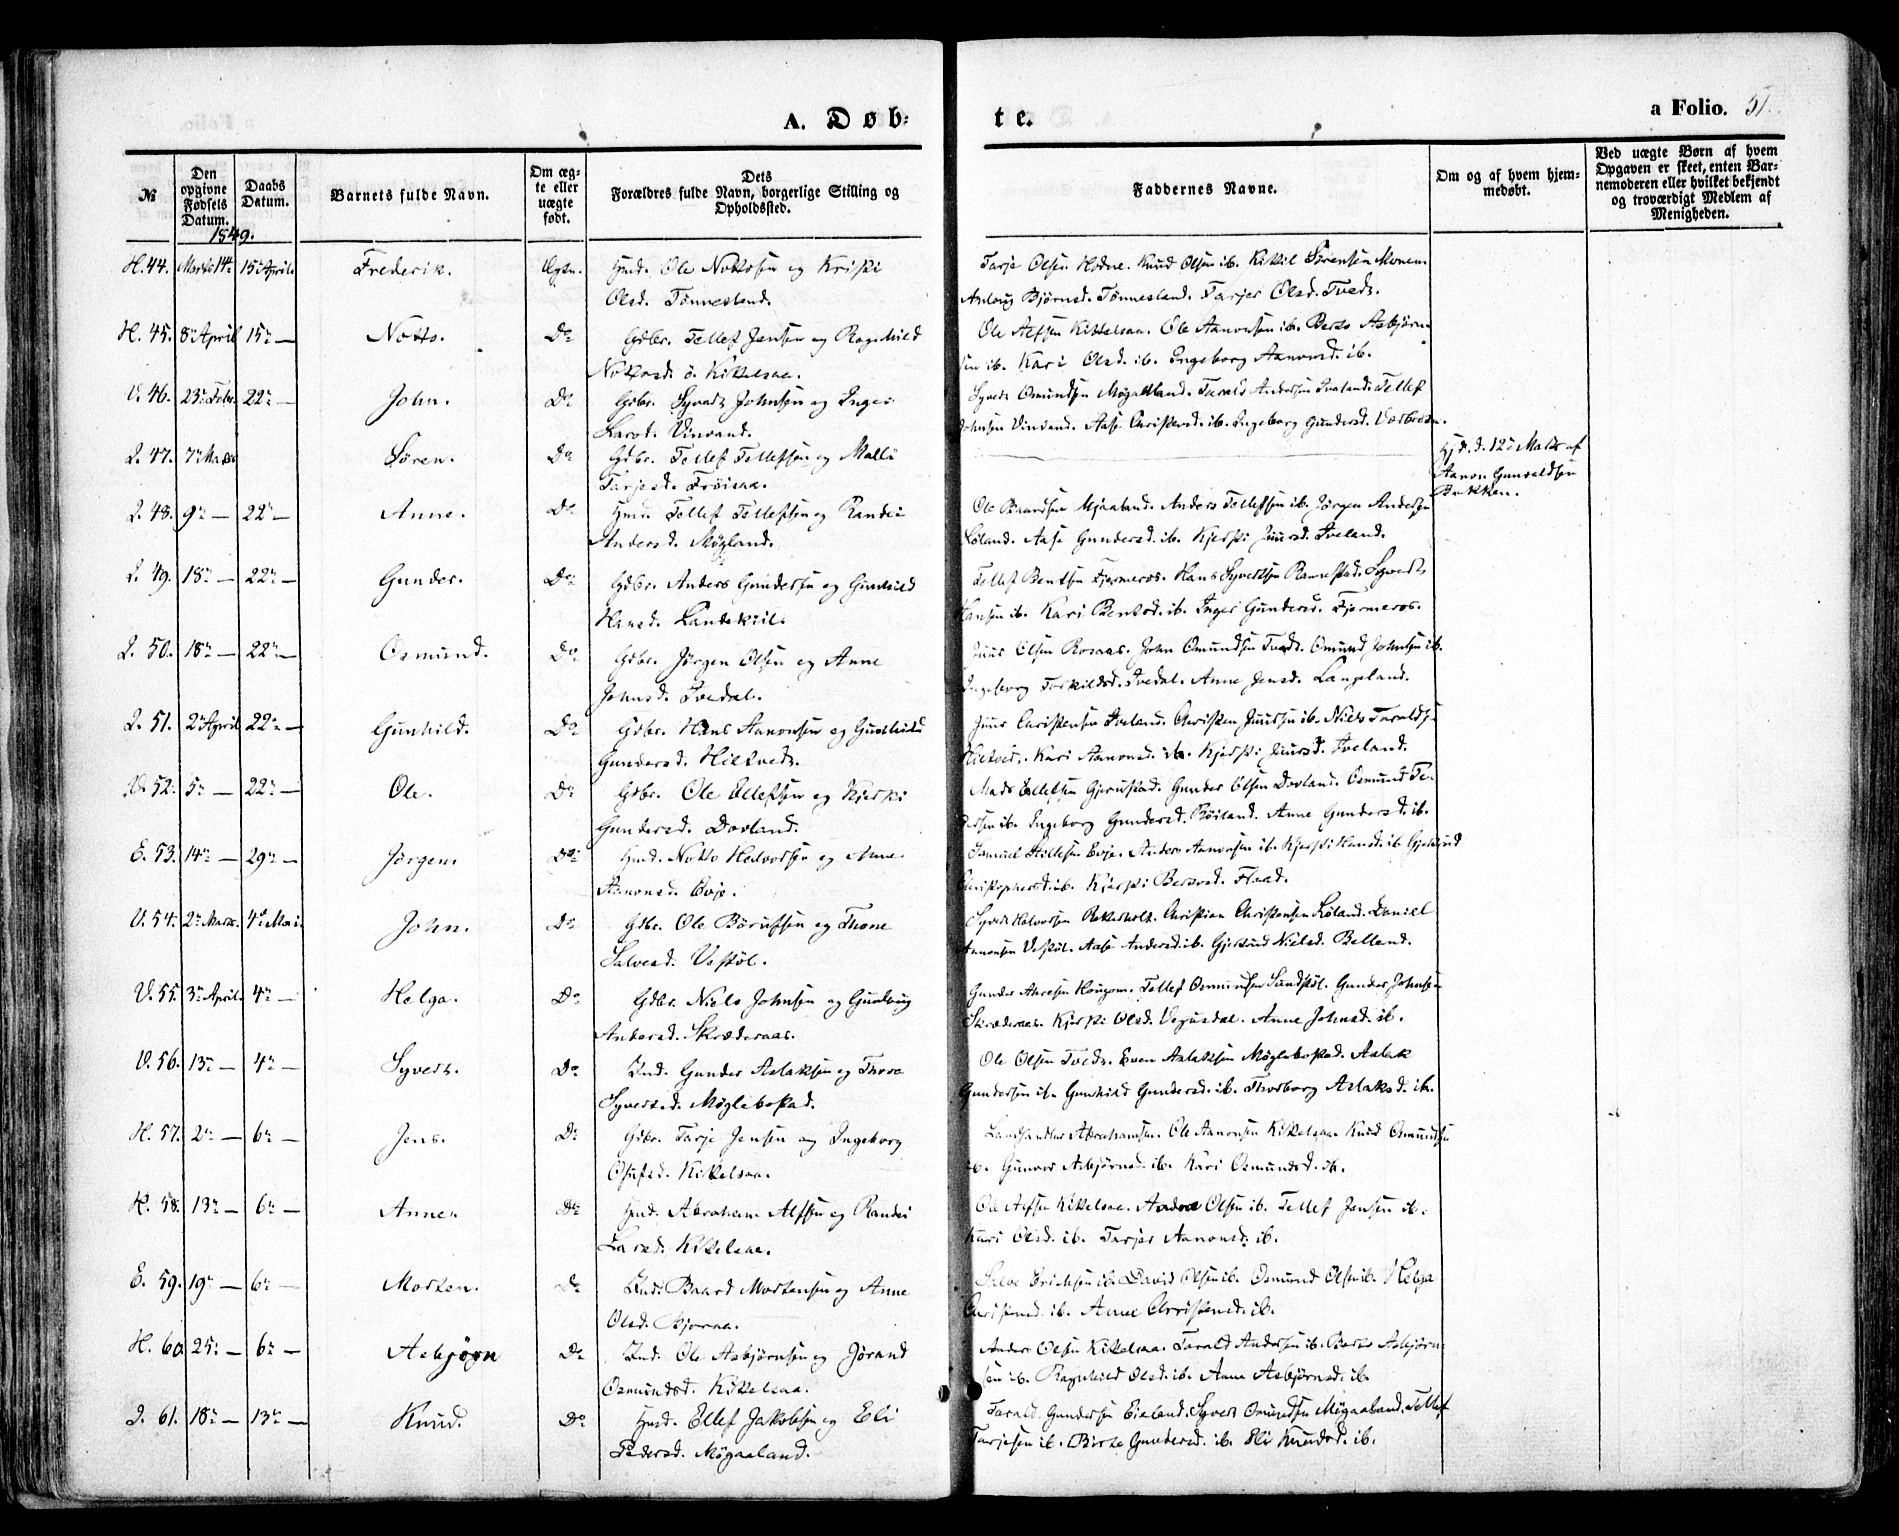 A. Døb-
te.
a Folio. 51.
№
Den opgivne Fødsels Datum.
Daabs Datum.
Barnets fulde Navn.
Om ægte eller uægte født.
Dets Forældres fulde Navn, borgerlige Stilling og Opholdssted.
Faddernes Navne.
Om og af hvem hjemmedøbt.
Ved uægte Børn af hvem Opgaven er skeet, enten Barnemoderen eller hvilket bekjendt og troværdigt Medlem af Menigheden.
1849.
H. 44. Marts 14de 15de April Frederik. Ægte. Hmd. Ole Nottosen og Kristi
Olsd. Tønnesland.
Tarje Olsen Hodne. Knud Olsen ib. Kittil Sørensen Monen
Anlaug Bjørnsd. Tønnesland. Tarjer Olsd. Tvedt.
H. 45. 8de April 15de — Notto. Do Gdbr. Tellef Jensen og Ragnhild
Nottosd. ö. Kittelsaa.
Ole Alfsen Kittelsaa. Ole Aanonsen ib. Berto Asbjørn-
sen ib. Kari Olsd. ib. Ingeborg Aanonsd. ib.
V. 46. 23de Febr. 22de — John. Do Gdbr. Syvert Johnsen og Inger
Larsd. Vinvand.
Syvert Osmundsen Møgaaland. Tarald Andersen Iveland. Tellef
Johnsen Vinvand. Aase Christensd. ib. Ingeborg Gundersd.
I. 47. 7de Marts Søren. Do Gdbr. Tellef Tellefsen og Malli
Tarjesd. Frøisaa.
Hj. d. d. 12de Marts af
Aanon Gunvaldsen
Bakken.
I. 48. 9de — 22de — Anne. Do Hmd. Tellef Tellefsen og Randi
Andersd. Møgland.
Ole Baardsen Mjaaland. Anders Tellefsen ib. Jørgen Andersen
Løland. Aase Gundersd. ib. Kjersti Juursd. Iveland.
I. 49. 18de — 22de — Gunder. Do Gdbr. Anders Gundersen og Gunhild
Hansd. Landskiil.
Tellef Bentsen Fjermeros. Hans Syvertsen Rannestad. Syvert
Hansen ib. Kari Bentsd. ib. Inger Gundersd. Fjermeros.
I. 50. 18de — 22de — Osmund. Do Gdbr. Jørgen Olsen og Anne
Johnsd. Ivedal.
Juur Olsen Rosaas. John Omundsen Tvedt. Omund Johnsen ib.
Ingeborg Torkildsd. Ivedal. Anne Jensd. Langeland.
I. 51. 2de April 22de — Gunhild. Do Gdbr. Hans Aanonsen og Gunhild
Gundersd. Hiltvedt.
Juur Christensen Iveland. Christen Juursen ib. Niels Taralds.
Hiltvedt. Kari Aanonsd. ib. Kjersti Juursd. Iveland.
V. 52. 5te — 22de — Ole. Do Gdbr. Ole Ellefsen og Kjersti
Gundersd. Dovland.
Mads Ellefsen Gjerustad. Gunder Olsen Dovland. Osmund Te-
dersen ib. Ingeborg Gundersd. Røiland. Anne Gundersd. ib.
E. 53. 14de — 29de — Jørgen. Do Hmd. Notto Halvorsen og Anne
Aanonsd. Evje.
Samuel Evje. Anders Aanonsen ib. Kjersti Hansd. ib. Gjertrud
Christophersd. ib. Kjersti Berovsd. Flaad.
V. 54. 2de Marts. 4de Mai. John. Do Gdbr. Ole Børufsen og Thone
Salvesd. Vestøl.
Syvert Halvorsen. Christian Christensen Løland. Daniel
Aanonsen Vestøl. Aase Andersd. ib. Gjertrud Nielsd. Belland.
V. 55. 3de April. 4de — Helga. Do Gdbr. Niels Johnsen og Gunborg
Andersd. Skræderaas.
Gunder Aaresen Hougom. Tellef Osmundsen Sundstøl. Gunder Johnsen
Skræderaas. Kjersti Olsd. Vegusdal. Anne Johnsd. ib.
V. 56. 13de — 4de — Syvert. Do Ind. Gunder Aslaksen og Thora
Syvertsd. Møglebostad.
Ole Olsen Tvedt. Even Aslaksen Møglebostad. Aslak
Gundersen ib. Gunhild Gundersd. ib. Thorborg Aslaksd. ib.
H. 57. 2de — 6te — Jens. Do Gdbr. Tarje Jensen og Ingeborg
Osufsd. Kittelsaa.
Landhandler Abrahamsen. Ole Aanonsen Kittelsaa. Knud Osmundsen
ib. Gunvor Asbjørnsd. ib. Kari Osmundsd. ib.
H. 58. 13de — 6te — Anne. Do Hmd. Abraham Alfsen og Randi
Larsd. Kittelsaa.
Ole Alfsen Kittelsaa. Andrea Olsen ib. Tellef Jensen ib.
Kari Olsd. ib. Tarjer Aanonsd. ib.
E. 59. 19de — 6te — Morten. Do Ind. Baard Mortensen og Anne
Olsd. Kjorraa.
Salve Erichsen ib. David Olsen ib. Osmund Olsen ib. Helga
Christensd. ib. Anne Christensd. ib.
H. 60. 25de — 6te — Asbjørn Do Ind. Ole Asbjørnsen og Jørand
Osmundsd. Kittelsaa.
Anders Olsen Kittelsaa. Tarald Andersen ib. Berto Asbjørn-
sen ib. Ragnhild Olsd. ib. Anne Asbjørnsd. ib.
I. 61. 18de — 13de — Knud. Do Hmd. Ellef Jakobsen og Eli
Pedersd. Møgaaland.
Tarald Gundersen Eieland. Syvert Omundsen Møgaaland. Tellef
Tarjesen ib. Birte Gundersd. ib. Eli Knudsd. ib.